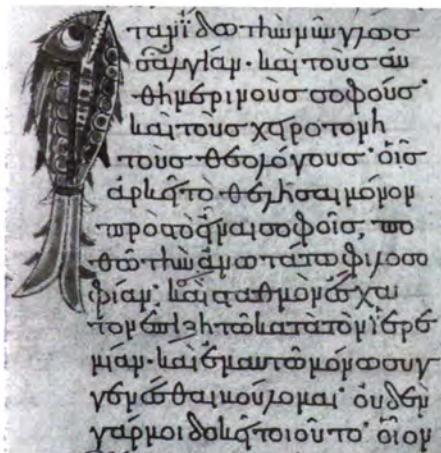 ταν ἴδω τὴν νῦν γλωσ
σαλγίαν· καὶ τοὺς αὐ
θημερινοὺς σοφούς·
καὶ τοὺς χειροτονη
τοὺς θεολόγους· οἷς
ἀρκεῖ τὸ θελῆσαι μόνον
πρὸς τὸ εἶναι σοφοῖς, πο
θῶ τὴν ἀνωτάτω φιλοσο
φίαν· καὶ σταθμὸν ἔσχα
τον ἐπιζητῶ κατὰ τὸν ἱερε
μίαν· καὶ ἐμαυτῶ μόνω συγ
γενέσθαι βούλομαι· οὐδὲν
γάρ μοι δοκεῖ τοιοῦτο· οἷον